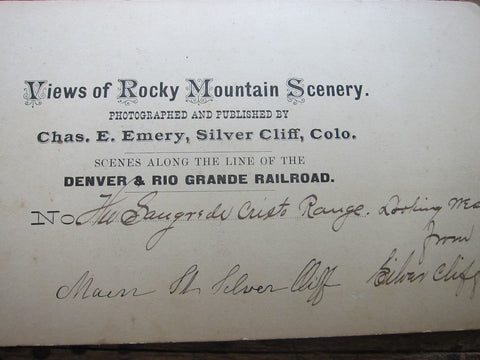 Views of Rocky Mountain Scenery.
PHOTOGRAPHED AND PUBLISHED BY
Chas. E. Emery, Silver Cliff, Colo.
SCENES ALONG THE LINE OF THE
DENVER & RIO GRANDE RAILROAD.
No. The Sangre de Cristo Range. Looking Wes
from
Main St. Silver Cliff Silver Cliff